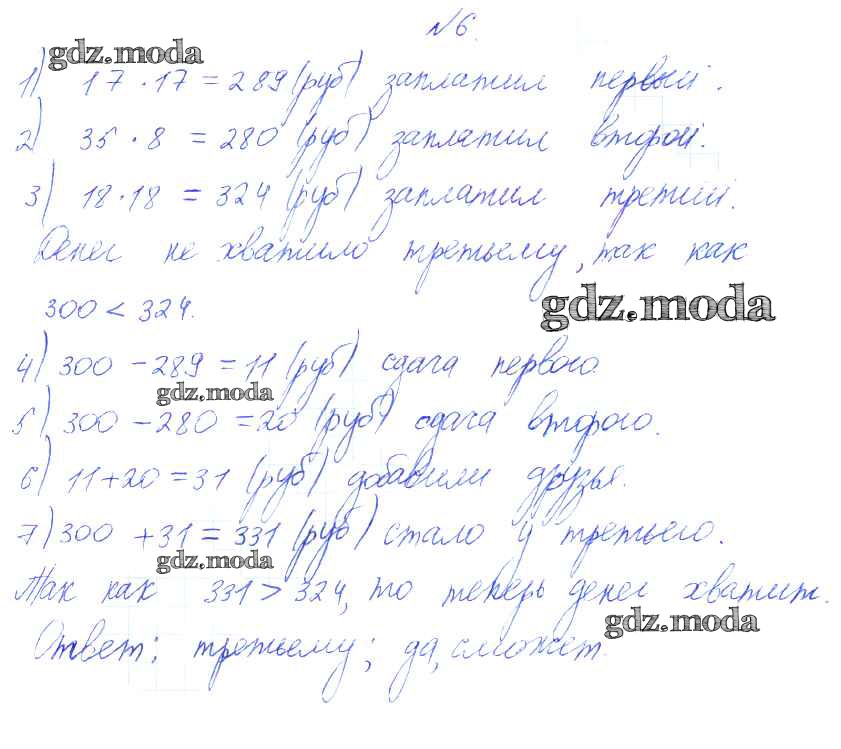 №6.
gdz.moda
1) 17 · 17 = 289 (руб) заплатил первый.
2) 35 · 8 = 280 (руб) заплатил второй.
3) 18 · 18 = 324 (руб) заплатил третий.
Денег не хватило третьему, так как
300 < 324.
gdz.moda
4) 300 - 289 = 11 (руб) сдача первого.
gdz.moda
5) 300 - 280 = 20 (руб) сдача второго.
6) 11 + 20 = 31 (руб) добавили друзья.
7) 300 + 31 = 331 (руб) стало у третьего.
gdz.moda
Так как 331 > 324, то теперь денег хватит.
gdz.moda
Ответ: третьему; да, сможет.